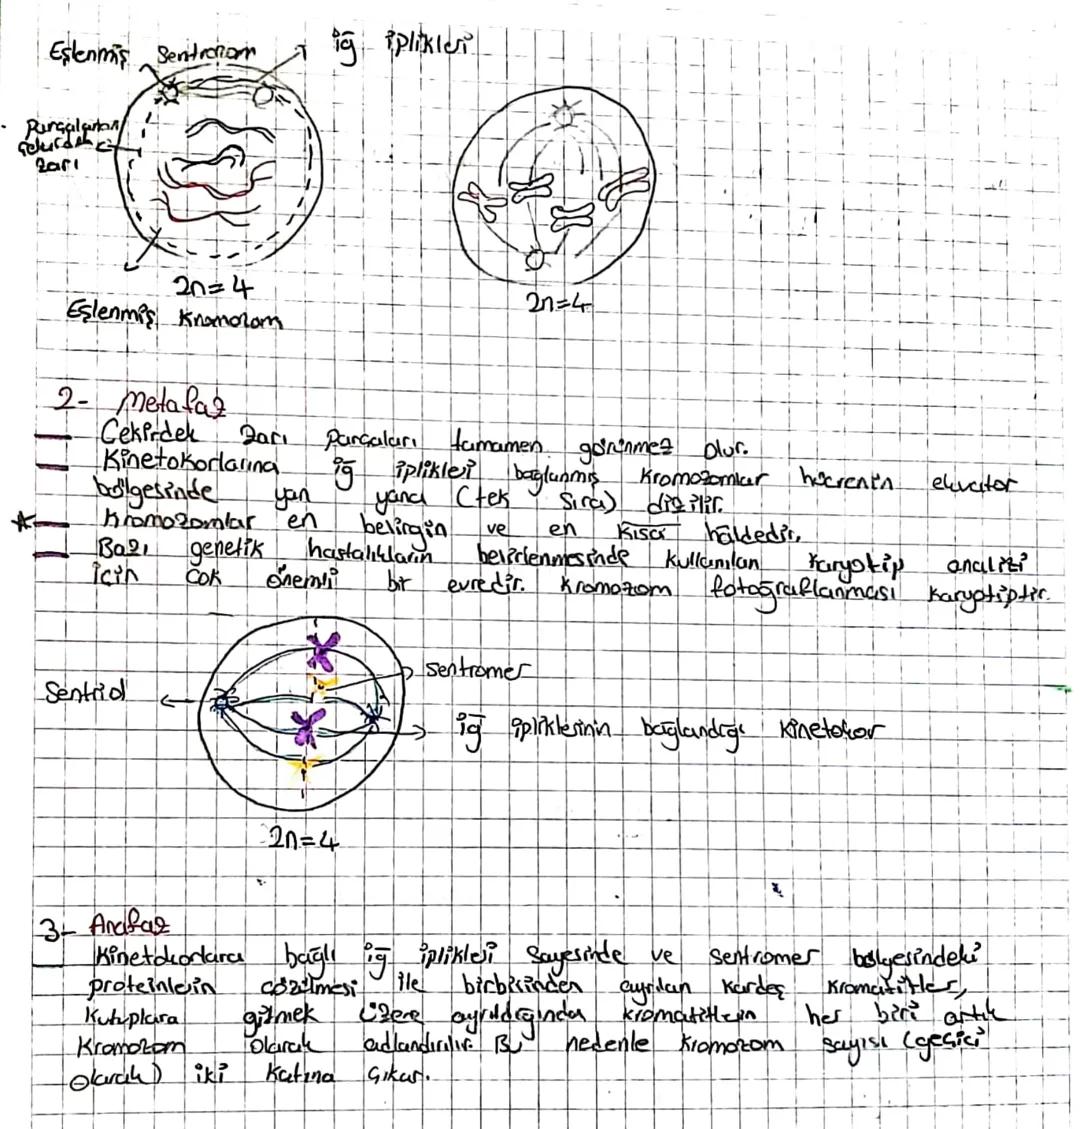 Eşlenmiş Sentrozom
iğ iplikleri
Parçalanan
çekirdek
zarı
2n=4
Eşlenmiş Kromozom
2n=4
2- Metafaz
Çekirdek zarı parçaları tamamen görünmez olur.
Kinetokorlarına iğ iplikleri bağlanmış kromozomlar hücrenin ekvator
bölgesinde yan yana (tek sıra) dizilir.
Kromozomlar en belirgin ve en kısa haldedir.
Bazı genetik hastalıkların belirlenmesinde kullanılan karyotip analizi
için çok önemli bir evredir. Kromozom fotoğraflanması karyotiptir.
Sentriol
sentromer
iğ ipliklerinin bağlandığı kinetokor
2n=4
3- Anafaz
Kinetokorlara bağlı iğ iplikleri sayesinde ve sentromer bölgesindeki
proteinlerin çözülmesi ile birbirinden ayrılan kardeş kromatitler,
kutuplara gitmek üzere ayrıldığında kromatitlerin her biri artık
kromozom olarak adlandırılır. Bu nedenle kromozom sayısı (geçici
olarak) iki katına çıkar.